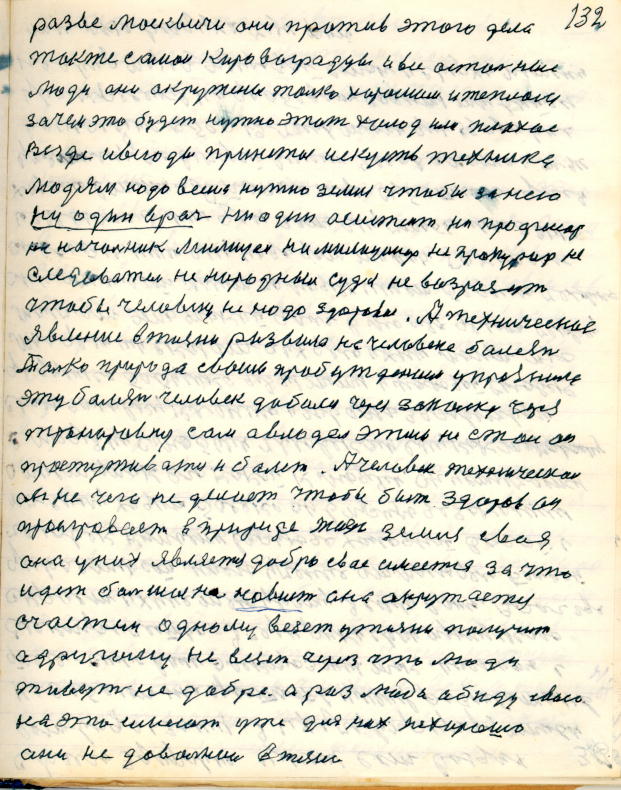 132
разве москвичи они против этого дела
также самои Кировоградци и вси астолные
люди они акружены толко хорошим и теплом
зачем это будет нужно этот холод или плохое
везде и вегоды принеты искуств техника
людям надо весма нужно земля чтобы за него
ни один врач ни один осистент ни професор
ни началник милиции ни милиционер не прокурор не
следователи не народныи суди не возразят
чтобы человеку не надо здоровя. А техническое
явление в жизни развила на человеке балезн
Толко природа своим пробуждением упразнила
эту балезн человек добился через закалку через
тренировку сам авлодел этим не стал он
простуживатися и балет. А человек технически
он не чего не делает чтобы быт здоров он
проигровает в природе жизн земля своя
она у них является добро свое имеется за что
идет болшая на новист она акружается
счастем одному везет у жизни получит
а другому не везет через что люди
живут не добре. а раз люди абиду свою
на это имеют уже для них нехорошо
они не доволни в жизни